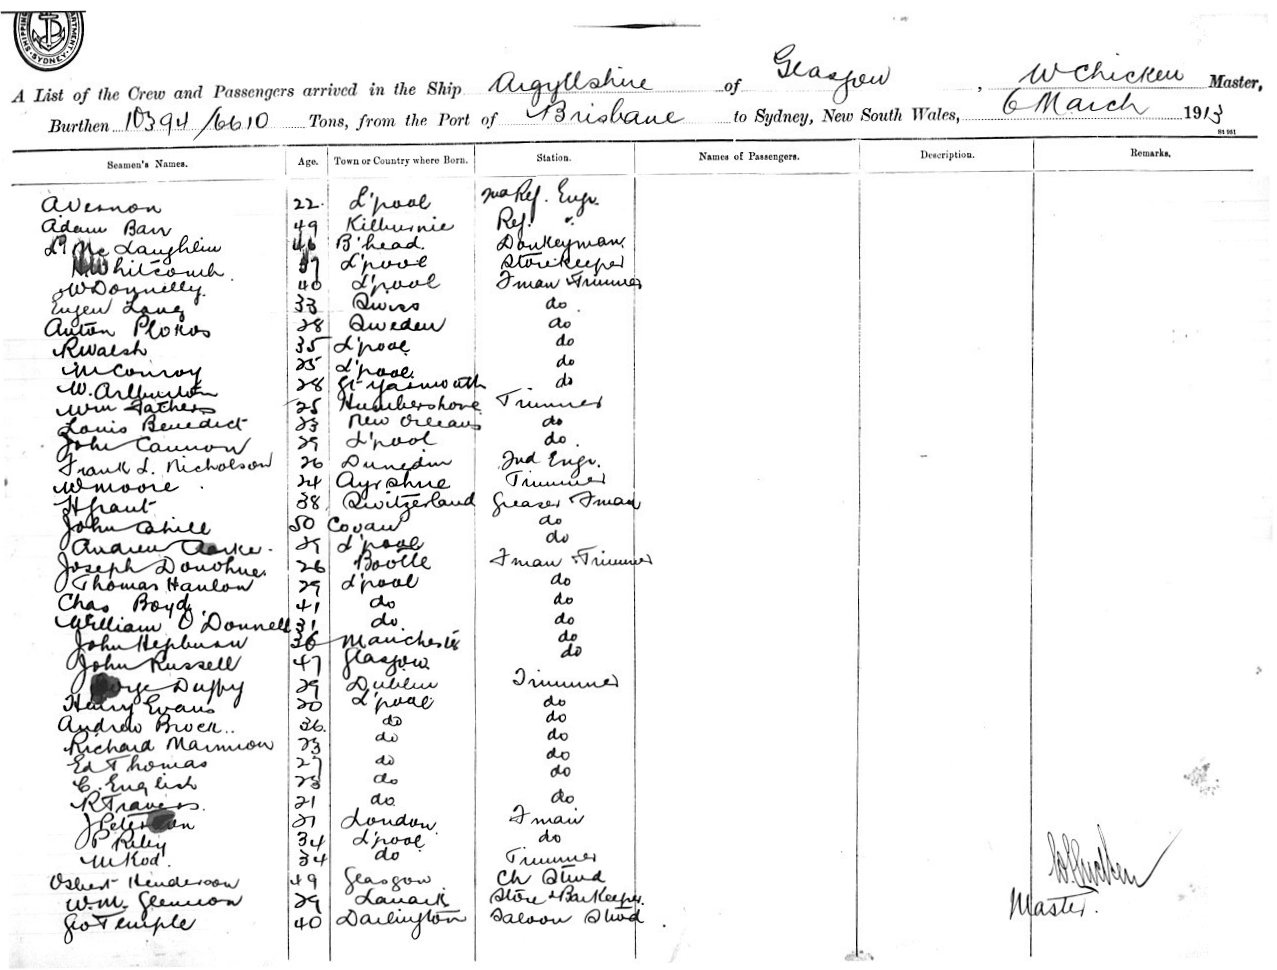 SHIPPING DEPARTMENT. SYDNEY
A List of the Crew and Passengers arrived in the Ship Argyllshire of Glasgow, W Chicken Master,
Burthen 10394/6610 Tons, from the Port of Brisbane to Sydney, New South Wales, 6 March 1913
Seamen's Names. Age. Town or Country where Born. Station. Names of Passengers. Description. Remarks.
A Vernon 22 L'pool 2nd Ref. Engr.
Adam Barr 49 Kilburnie Ref. "
Mc Laughlin 46 B'head Donkeyman
Whitcomb 37 L'pool Storekeeper
W Donnelly 40 L'pool Fman Trimmer
Eugen Lang 33 Swiss do
Anton Plokos 28 Sweden do
R Walsh 35 L'pool do
M Conroy 25 L'pool do
W. Arlburton 28 Gt Yarmouth do
Wm Fathers 25 Humberstone Trimmer
Louis Benedict 23 New Orleans do
John Cannon 29 L'pool do
Frank L. Nicholson 26 Dunedin 2nd Engr.
W Moore 24 Ayrshire Trimmer
H Grant 38 Switzerland Greaser Fman
John Cahill 50 Covan do
Andrew Clarke 29 L'pool do
Joseph Donohue 26 Bootle Fman Trimmer
Thomas Hanlon 29 L'pool do
Chas Boyd 41 do do
William O'Donnell 31 do do
John Hepburn 36 Manchester do
John Russell 47 Glasgow do
Duffy 29 Dublin Trimmer
Henry Evans 20 L'pool do
Andrew Brock 36 do do
Richard Marmion 23 do do
Ed Thomas 27 do do
C. English 23 do do
R Travers 21 do do
J Peterson 27 London Fman
P Riley 34 L'pool do
M Rod 34 do Trimmer
Osbert Henderson 49 Glasgow Ch Stwd
W.M. Glennon 29 Lanark Store & Barkeeper
Geo Temple 40 Darlington Saloon Stwd
W Chicken
Master.